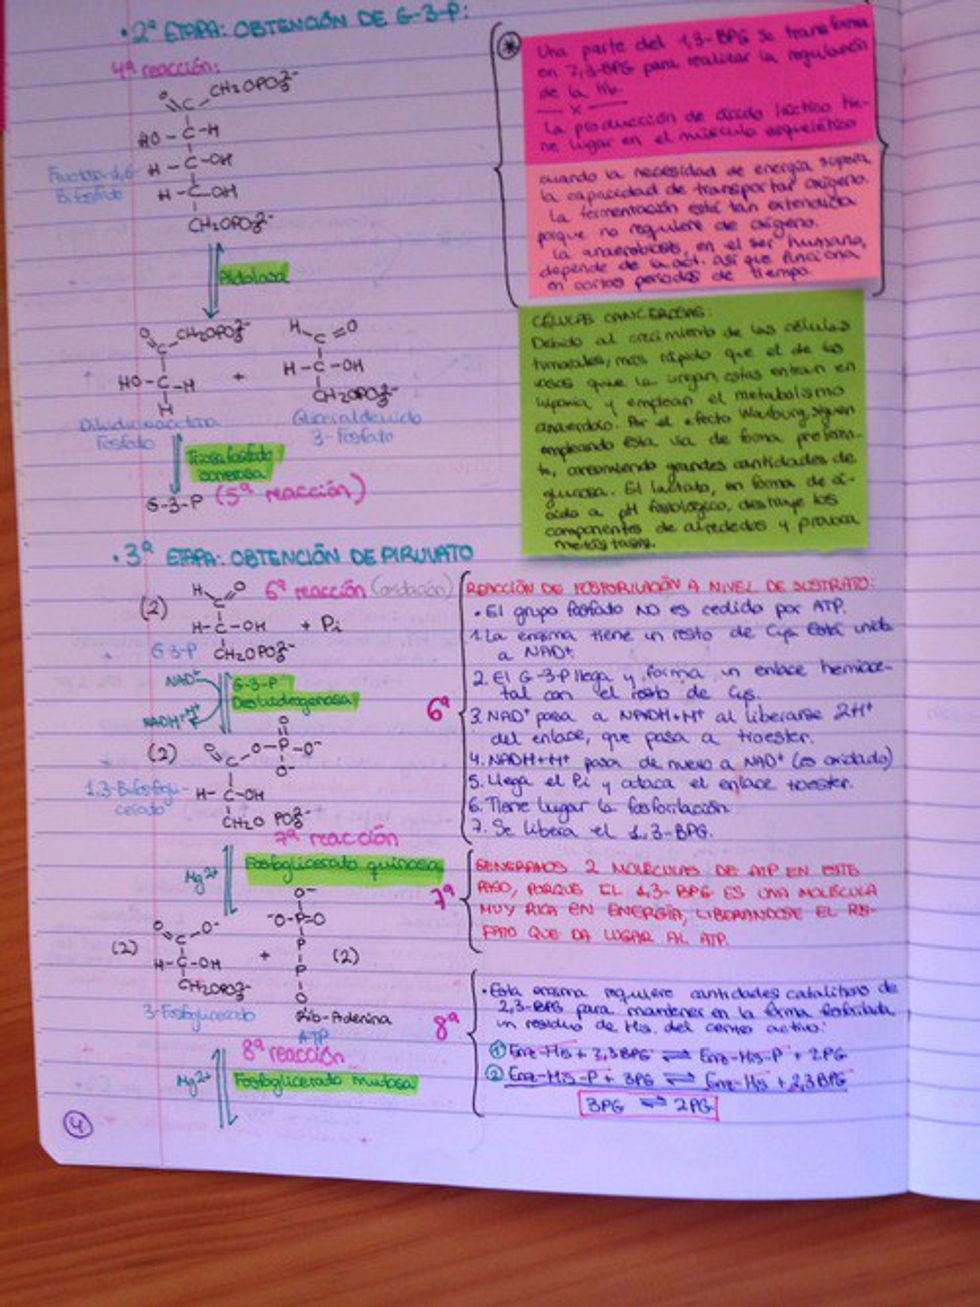 · 2ª ETAPA: OBTENCIÓN DE G-3-P:
4ª reacción:
O
C
CH₂OPO₃²⁻
HO-C-H
H-C-OH
H-C-OH
CH₂OPO₃²⁻
Fructosa-1,6-
Bifosfato
Aldolasa
O
C
CH₂OPO₃²⁻
HO-C-H
H
+
H
C=O
H-C-OH
CH₂OPO₃²⁻
Dihidroxiacetona
Fosfato
Gliceraldehído
3-Fosfato
Triosa fosfato
isomerasa
G-3-P (5ª reacción)
*
Una parte del 1,3-BPG se transforma
en 2,3-BPG para realizar la regulación
de la Hb.
— x —
La producción de ácido láctico tie-
ne lugar en el músculo esquelético
cuando la necesidad de energía supera
la capacidad de transportar oxígeno.
La fermentación está tan extendida
porque no requiere de oxígeno.
La anaerobiosis, en el ser humano,
depende de la act. así que funciona
en cortos periodos de tiempo.
CÉLULAS CANCEROSAS:
Debido al crecimiento de las células
tumorales, más rápido que el de los
vasos que la irrigan estas entran en
hipoxia y emplean el metabolismo
anaerobio. Por el efecto Warburg, siguen
empleando esta vía de forma preferen-
te, consumiendo grandes cantidades de
glucosa. El lactato, en forma de áci-
do a pH fisiológico, destruye los
componentes de alrededor y provoca
metástasis.
· 3ª ETAPA: OBTENCIÓN DE PIRUVATO
6ª reacción (oxidación)
(2)
H
C
O
H-C-OH + Pi
CH₂OPO₃²⁻
G3-P
NAD⁺
NADH+H⁺
G-3-P
Deshidrogenasa
(2)
O
C
O-P-O⁻
O
O⁻
H-C-OH
CH₂O PO₃²⁻
1,3-Bifosfogli-
cerato
7ª reacción
Mg²⁺
Fosfoglicerato quinasa
(2)
O
C
O⁻
H-C-OH
CH₂OPO₃²⁻
+
O⁻
⁻O-P-O
P
P
O
(2)
Rib-Adenina
3-Fosfoglicerato
ATP
8ª reacción
Mg²⁺
Fosfoglicerato mutasa
4
6ª
REACCIÓN DE FOSFORILACIÓN A NIVEL DE SUSTRATO:
· El grupo fosfato NO es cedido por ATP.
1. La enzima tiene un resto de Cys. Está unida
a NAD⁺.
2. El G-3-P llega y forma un enlace hemiace-
tal con el resto de Cys.
3. NAD⁺ pasa a NADH+H⁺ al liberarse 2H⁺
del enlace, que pasa a tioester.
4. NADH+H⁺ pasa de nuevo a NAD⁺ (es oxidado)
5. Llega el Pi y ataca el enlace tioester.
6. Tiene lugar la fosforilación.
7. Se libera el 1,3-BPG.
7ª
GENERAMOS 2 MOLÉCULAS DE ATP EN ESTE
PASO, PORQUE EL 1,3-BPG ES UNA MOLÉCULA
MUY RICA EN ENERGÍA, LIBERÁNDOSE EL FOS-
FATO QUE DA LUGAR AL ATP.
8ª
· Esta enzima requiere cantidades catalíticas de
2,3-BPG para mantener en la forma fosforilada
un residuo de His. del centro activo:
① Enz-His + 2,3BPG ⇌ Enz-His-P + 2PG
② Enz-His-P + 3PG ⇌ Enz-His + 2,3BPG
3PG ⇌ 2PG